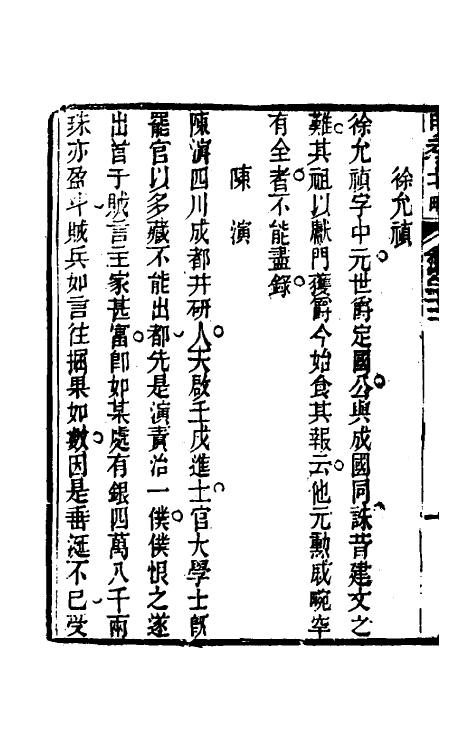 徐允禎
徐允禎字中元世爵定國公與成國同誅昔建文之
難其祖以獻門獲爵今始食其報云他元勳戚畹罕
有全者不能盡錄
陳演
陳演四川成都井研人天啟壬戌進士官大學士旣
罷官以多藏不能出都先是演責治一僕僕恨之遂
出首于賊言主家甚富卽如某處有銀四萬八千兩
珠亦盈斗賊兵如言往掘果如數因是垂涎不已受